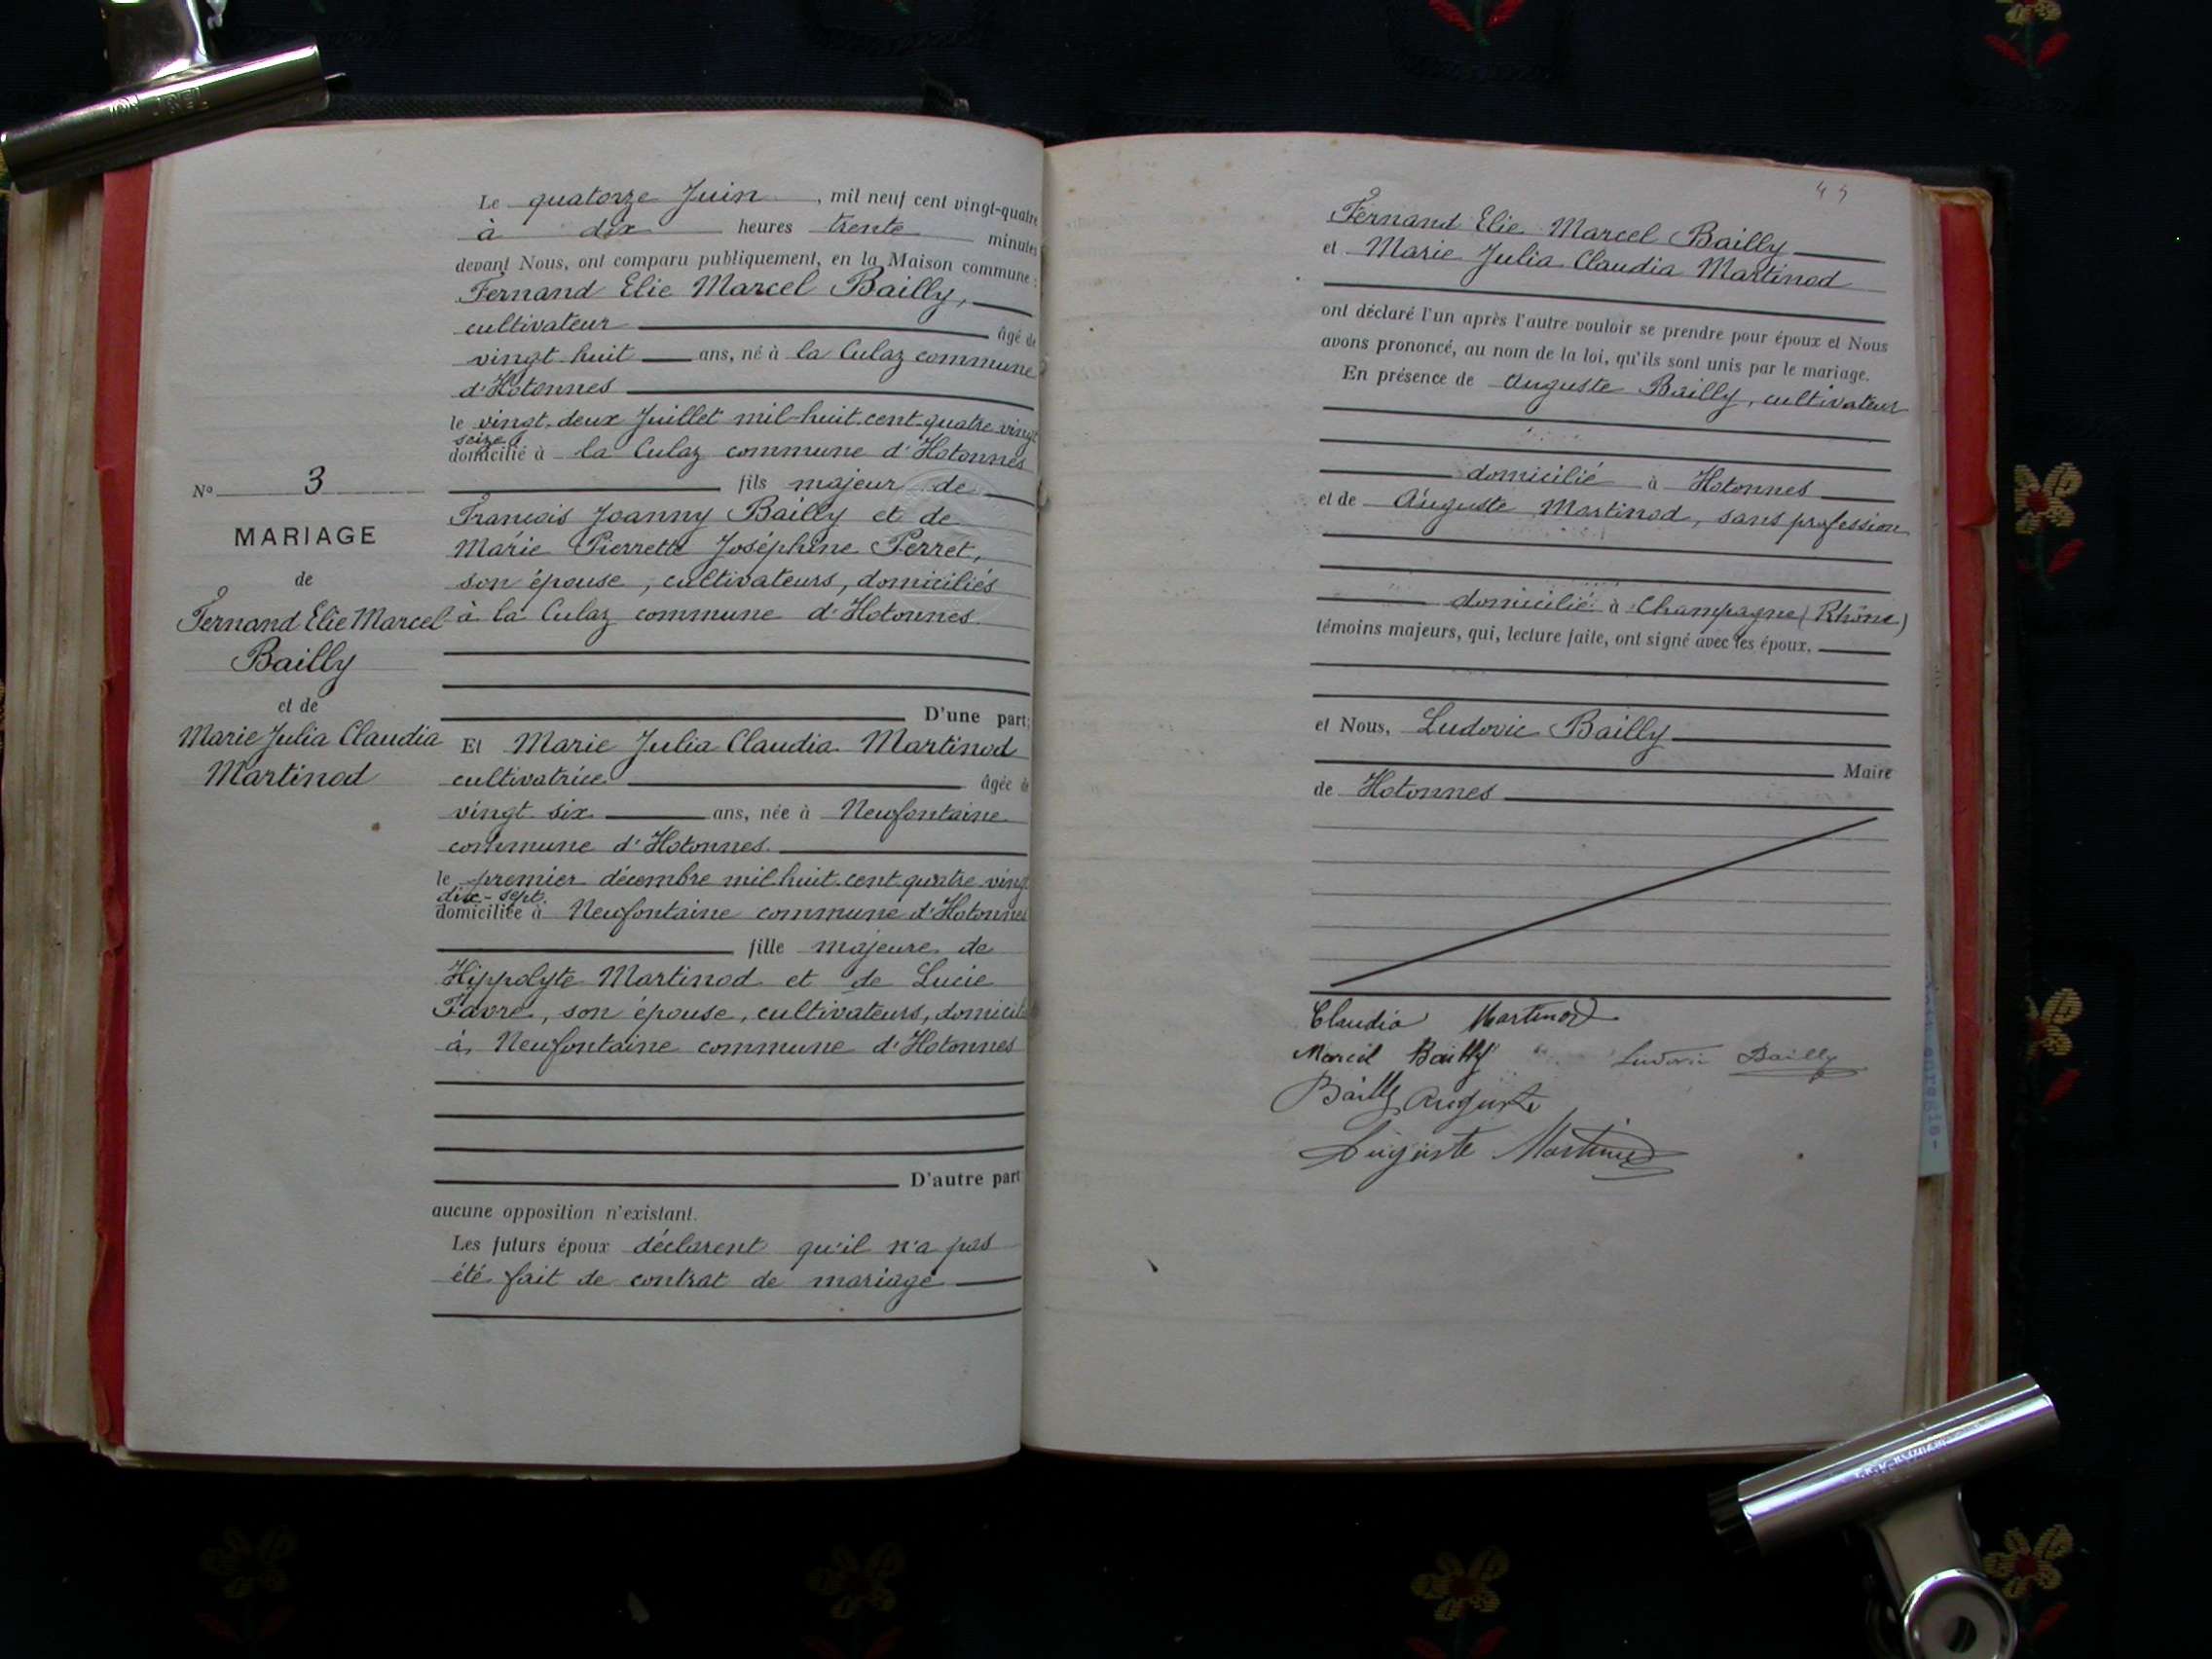 Le quatorze Juin, mil neuf cent vingt-quatre
à dix heures trente minutes
devant Nous, ont comparu publiquement, en la Maison commune :
Fernand Elie Marcel Bailly,
cultivateur âgé de
vingt huit ans, né à la Culaz commune
d'Hotonnes
le vingt-deux Juillet mil-huit-cent-quatre vingt
seize
domicilié à la Culaz commune d'Hotonnes
fils majeur de
François Joanny Bailly et de
Marie Pierrette Joséphine Perret,
son épouse, cultivateurs, domiciliés
à la Culaz commune d'Hotonnes.
D'une part;
Et Marie Julia Claudia Martinod
cultivatrice âgée de
vingt six ans, née à Neufontaine
commune d'Hotonnes.
le premier décembre mil huit-cent quatre-vingt
dix-sept.
domiciliée à Neufontaine commune d'Hotonnes
fille majeure de
Hippolyte Martinod et de Lucie
Favre, son épouse, cultivateurs,
à Neufontaine commune d'Hotonnes
D'autre part
aucune opposition n'existant.
Les futurs époux déclarent qu'il n'a pas
été fait de contrat de mariage
No 3
MARIAGE
de
Fernand Elie Marcel
Bailly
et de
Marie Julia Claudia
Martinod
45
Fernand Elie Marcel Bailly
et Marie Julia Claudia Martinod
ont déclaré l'un après l'autre vouloir se prendre pour époux et Nous
avons prononcé, au nom de la loi, qu'ils sont unis par le mariage.
En présence de Auguste Bailly, cultivateur
domicilié à Hotonnes
et de Auguste Martinod, sans profession
domicilié à Champagne (Rhône)
témoins majeurs, qui, lecture faite, ont signé avec les époux.
et Nous, Ludovic Bailly
Maire
de Hotonnes
Claudia Martinod
Marcel Bailly Ludovic Bailly
Bailly Auguste
Auguste Martinod